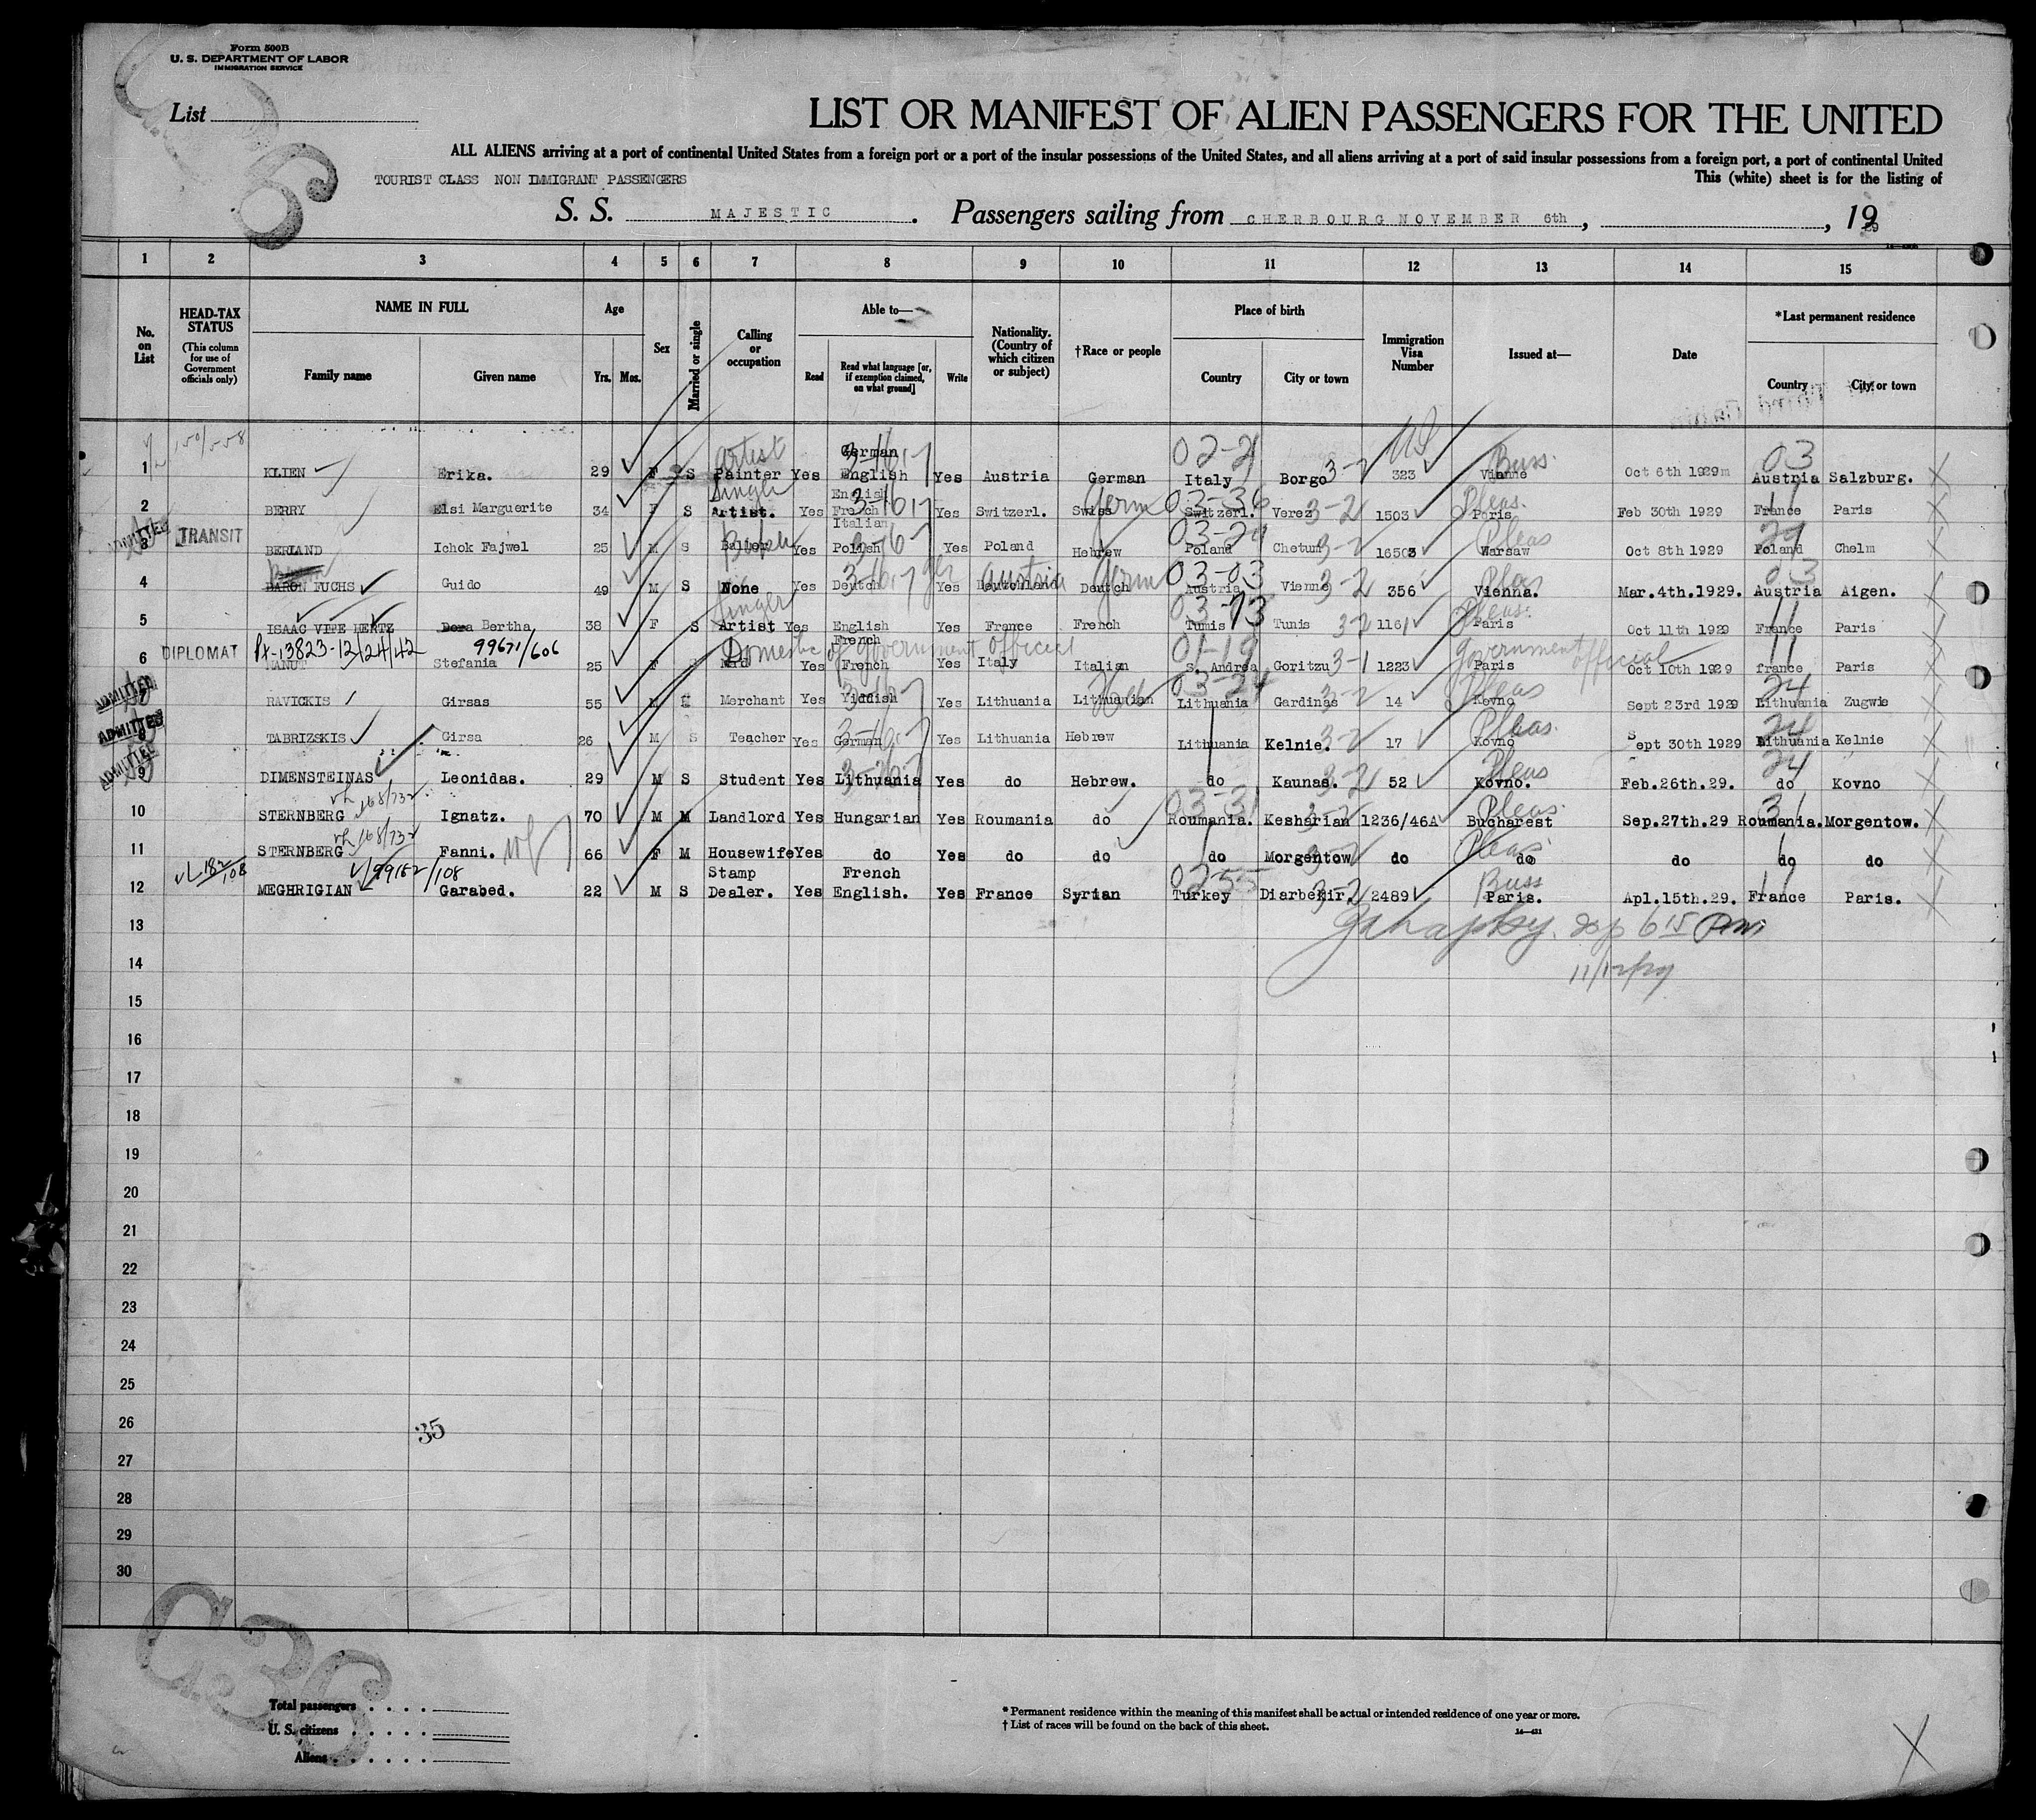 Form 500B
U. S. DEPARTMENT OF LABOR
IMMIGRATION SERVICE
List
LIST OR MANIFEST OF ALIEN PASSENGERS FOR THE UNITED
ALL ALIENS arriving at a port of continental United States from a foreign port or a port of the insular possessions of the United States, and all aliens arriving at a port of said insular possessions from a foreign port, a port of continental United
TOURIST CLASS NON IMMIGRANT PASSENGERS
This (white) sheet is for the listing of
S. S. MAJESTIC. Passengers sailing from CHERBOURG NOVEMBER 6th, , 1929
1 2 3 4 5 6 7 8 9 10 11 12 13 14 15
No. on List
HEAD-TAX STATUS
(This column for use of Government officials only)
NAME IN FULL
Family name Given name
Age
Yrs. Mos.
Sex
Married or single
Calling or occupation
Able to—
Read
Read what language [or, if exemption claimed, on what ground]
Write
Nationality. (Country of which citizen or subject)
†Race or people
Place of birth
Country City or town
Immigration Visa Number
Issued at—
Date
*Last permanent residence
Country City or town
1 KLIEN Erika. 29 F S Artist Painter Yes German English 3-16,7 Yes Austria German 02-21 Italy Borgo 3-2 323 Vienne Buss. Oct 6th 1929 03 Austria Salzburg.
2 BERRY Elsi Marguerite 34 F S Artist. Yes English French Italian Yes Switzerl. Swiss Germ 03-36 Switzerl. Verez 3-2 1503 Paris Pleas. Feb 30th 1929 11 France Paris
ADMITTED 3 TRANSIT BERLAND Ichok Fajwel 25 M S Yes Polish Yes Poland Hebrew Poland Chetum 3-2 16503 Warsaw Pleas Oct 8th 1929 Poland Chelm
4 BARON FUCHS Guido 49 M S None Yes Deutch Yes Deutchland Austria Deutch Germ 03-03 Austria Vienna 3-2 356 Vienna. Pleas Mar.4th.1929. 03 Austria Aigen.
5 ISAAC VITE HERTZ Dora Bertha 38 F S Singer Artist Yes English French Yes France French 03-73 Tunis Tunis 3-2 1161 Paris Pleas. Oct 11th 1929 11 France Paris
6 DIPLOMAT 13823-12/24/42 99671/606 Stefania 25 F Domestic of Government Official Yes French Yes Italy Italian 01-19 S. Andrea Goritzu 3-1 1223 Paris Government official Oct 10th 1929 11 france Paris
ADMITTED RAVICKIS Girsas 55 M Merchant Yes Yiddish Yes Lithuania Lithuanian 03-24 Lithuania Gardinas 3-2 14 Kovno Pleas Sept 23rd 1929 24 Lithuania Zugwie
ADMITTED 8 TABRIZSKIS Girsa 26 M S Teacher Yes German Yes Lithuania Hebrew Lithuania Kelnie. 3-2 17 Kovno Pleas. Sept 30th 1929 24 Lithuania Kelnie
ADMITTED 9 DIMENSTEINAS Leonidas. 29 M S Student Yes Lithuania Yes do Hebrew. do Kaunas. 3-2 52 Kovno. Pleas Feb.26th.29. 24 do Kovno
10 STERNBERG 168/732 Ignatz. 70 M M Landlord Yes Hungarian Yes Roumania do 03-31 Roumania. Kesharian 3-2 1236/46A Bucharest Pleas. Sep.27th.29 31 Roumania. Morgentow.
11 STERNBERG 168/732 Fanni. 66 F M Housewife Yes do Yes do do do Morgentow 3-2 do do Pleas. do do do
12 182/108 99182/108 MEGHRIGIAN Garabed. 22 M S Stamp Dealer. Yes French English. Yes France Syrian 02-55 Turkey Diarbekir. 3-2 2489 Paris. Buss Apl.15th.29. 11 France Paris.
13
14
15
16
17
18
19
20
21
22
23
24
25
26
27
28
29
30
35
C36
Total passengers
U. S. citizens
Aliens
*Permanent residence within the meaning of this manifest shall be actual or intended residence of one year or more.
† List of races will be found on the back of this sheet.
14—431